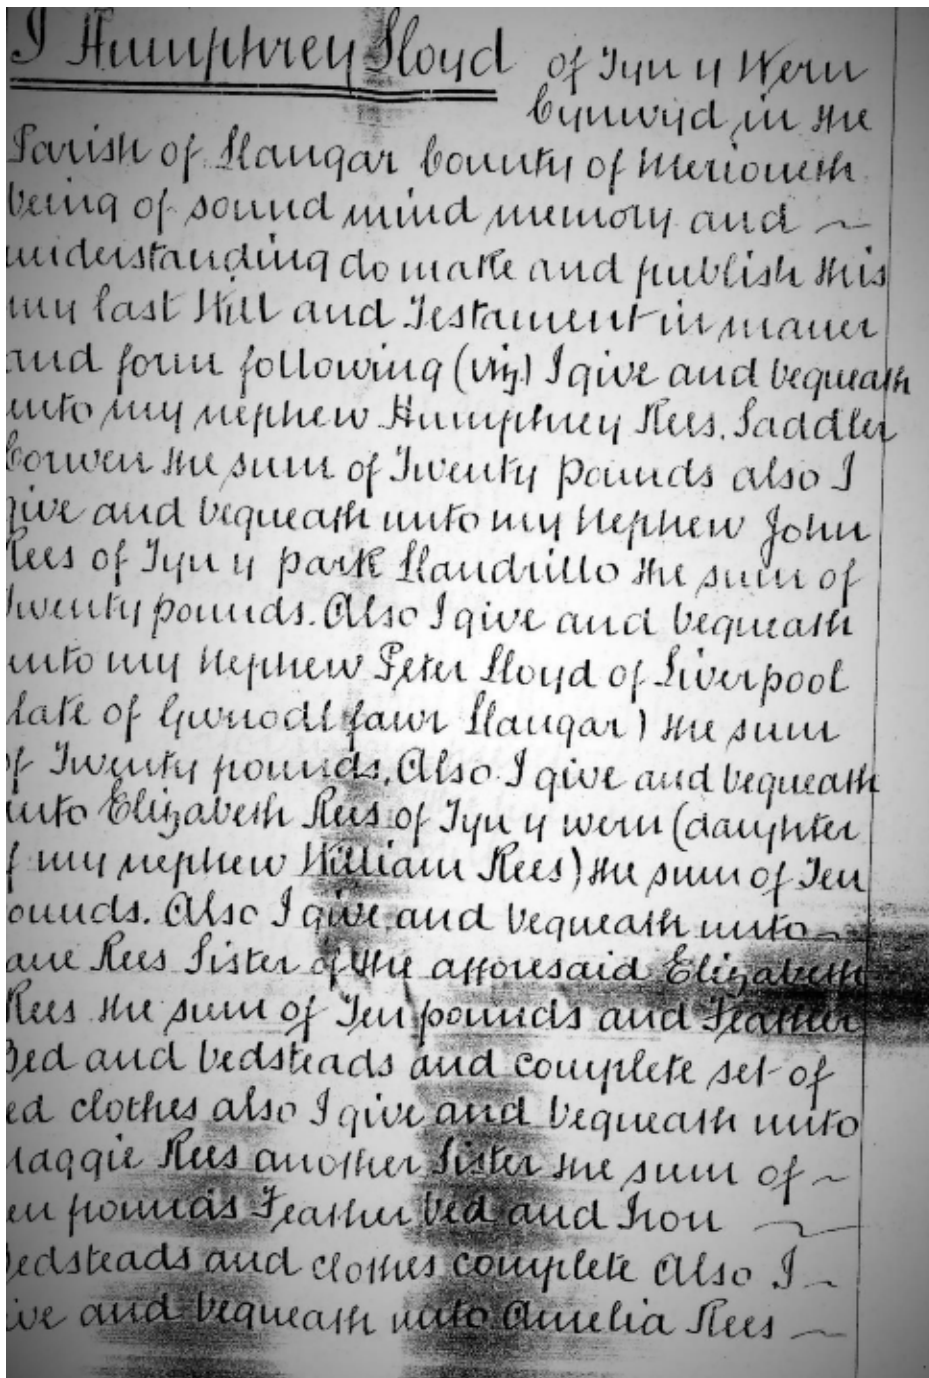 I Humphrey Lloyd of Tyn y Wern
Cynwyd in the
Parish of Llangar County of Merioneth
being of sound mind memory and ~
understanding do make and publish this
my last Will and Testament in maner
and form following (viz) I give and bequeath
unto my nephew Humphrey Rees. Saddler
Corwen the sum of Twenty pounds also I
give and bequeath unto my Nephew John
Rees of Tyn y park Llandrillo the sum of
Twenty pounds. Also I give and bequeath
unto my Nephew Peter Lloyd of Liverpool
late of Gwnodl fawr Llangar) the sum
of Twenty pounds. Also I give and bequeath
unto Elizabeth Rees of Tyn y wern (daughter
f my nephew William Rees) the sum of Ten
ounds. Also I give and bequeath unto ~
ane Rees Sister of the afforesaid Elizabeth
Rees the sum of Ten pounds and Feather
Bed and bedsteads and complete set of
ed clothes also I give and bequeath unto
Maggie Rees another Sister the sum of ~
en pounds Feather bed and Iron ~
Bedsteads and clothes complete Also I ~
ive and bequeath unto Amelia Rees ~